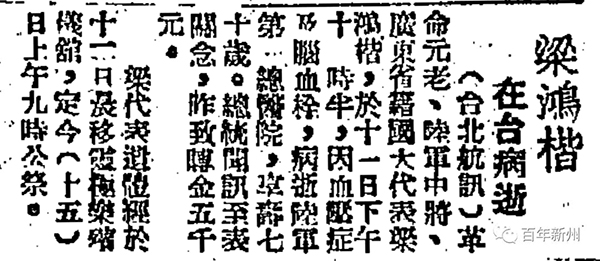 梁鴻楷
在台病逝
（台北航訊）革
命元老、陸軍中將、
廣東省籍國大代表梁
鴻楷，於十一日下午
十時半，因血壓症
及腦血栓，病逝陸軍
第總醫院，享壽七
十歲。總統聞訊至表
關念，昨致賻金五千
元。
梁代表遺體經於
十一日晨移設極樂殯
儀館，定今（十五）
日上午九時公祭。
百年新州